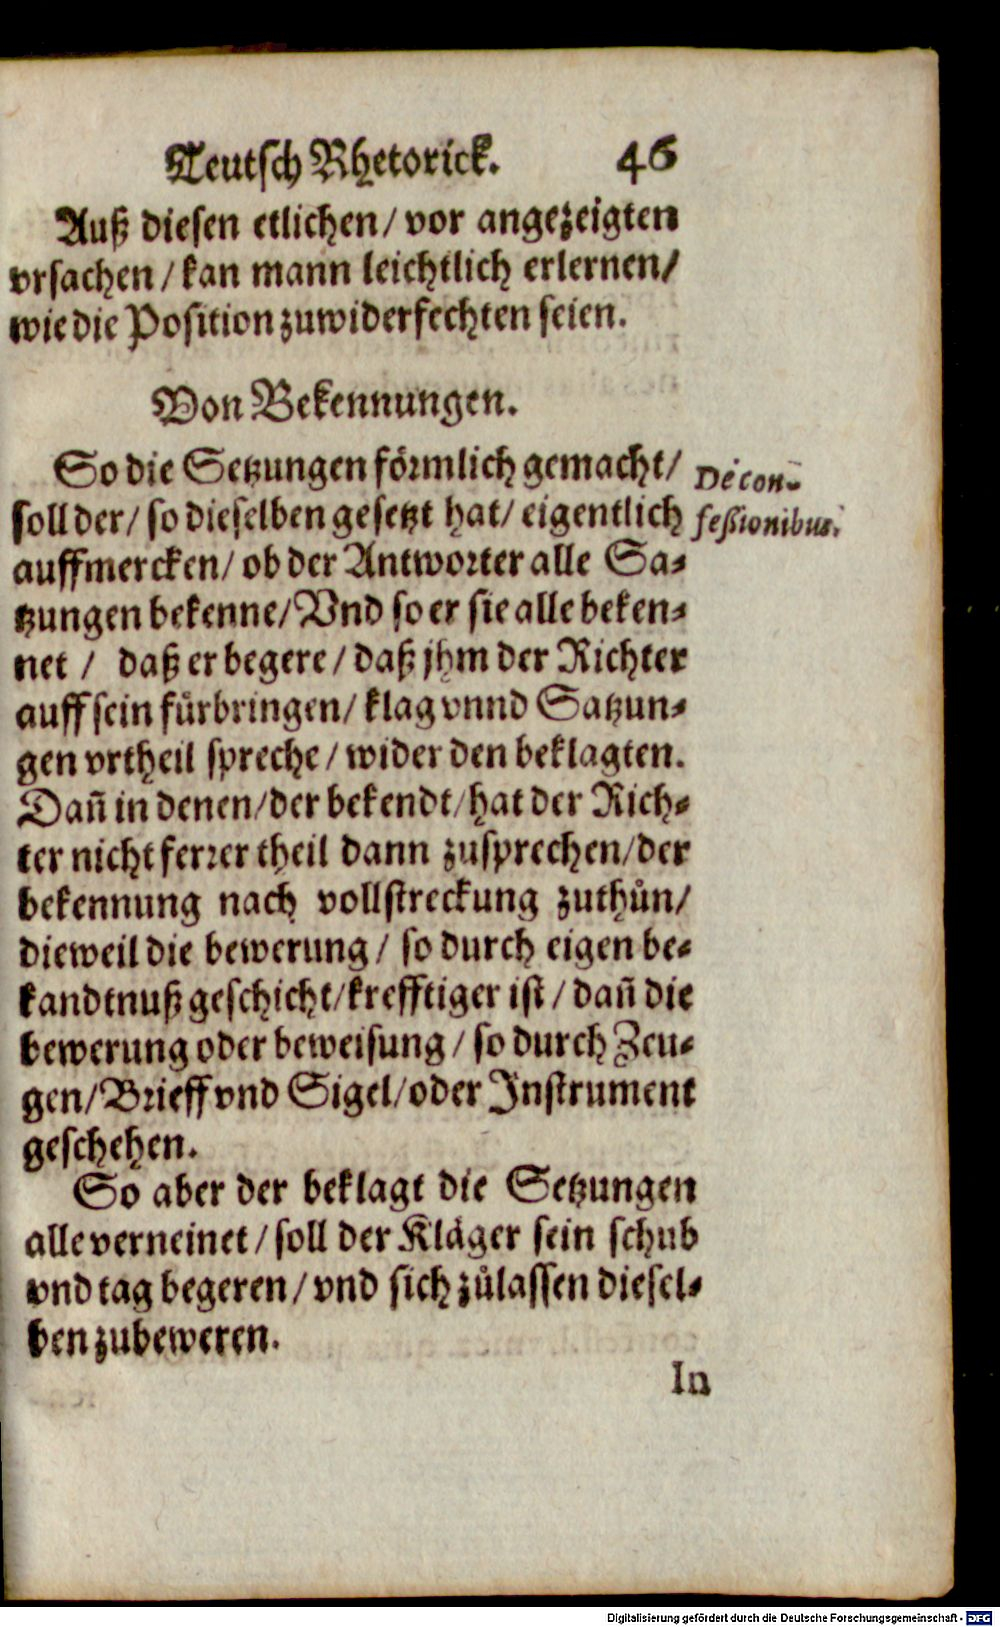 Teutsch Rhetorick. 46
Auß diesen etlichen/ vor angezeigten
vrsachen/ kan mann leichtlich erlernen/
wie die Position zuwiderfechten seien.
Von Bekennungen.
So die Setzungen förmlich gemacht/
soll der/ so dieselben gesetzt hat/ eigentlich
auffmercken/ ob der Antworter alle Sa-
tzungen bekenne/ Vnd so er sie alle beken-
net / daß er begere/ daß jhm der Richter
auff sein fürbringen/ klag vnnd Satzun-
gen vrtheil spreche/ wider den beklagten.
Dañ in denen/ der bekendt/ hat der Rich-
ter nicht ferrer theil dann zusprechen/ der
bekennung nach vollstreckung zuthůn/
dieweil die bewerung/ so durch eigen be-
kandtnuß geschicht/ krefftiger ist/ dañ die
bewerung oder beweisung/ so durch Zeu-
gen/ Brieff vnd Sigel/ oder Instrument
geschehen.
So aber der beklagt die Setzungen
alle verneinet/ soll der Kläger sein schub
vnd tag begeren/ vnd sich zůlassen diesel-
ben zubeweren.
In
De con-
feßionibus.
Digitalisierung gefördert durch die Deutsche Forschungsgemeinschaft - DFG